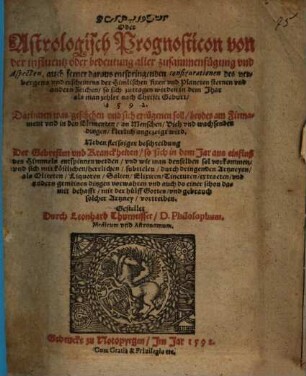 Oder
Astrologisch Prognosticon von
der influentz oder bedeutung aller zusammenfügung vnd
Aspecten, auch ferner daraus entspringenden
vnd erscheinens der himlischen fixen vnd Planeten sternen vnd
andern Zeichen/ so sich zutragen werden in dem Jhar
als man zehlet nach Christi Geburt/
1592.
Darinnen was zusehen vnd sich erzeigen sol/ beydes am Firma-
ment vnd in den Elementen/ an Menschen/ Vieh vnd wachsenden
dingen/ klerlich angezeigt wird,
Neben fleissiger beschreibung
Der Gebresten vnd Kranckheyten/ so sich in dem Jar aus einfluß
des Himmels entspinnen werden/ vnd wie man denselben sol vorkommen,
vnd sich mit köstlichen/ herrlichen/ subtielen/ durchdringenden Artzneyen,
als Oliteten/ Liquoren/ Saltzen/ Elixiren/ Tincturen/ extracten/ vnd
andern gemeinen dingen verwahren vnd auch do einer schon da-
mit behafft/ mit der hülff Gottes/ vnd gebrauch
solcher Artzney/ vertreiben.
Gestellet
Durch Leonhard Thurnisser/ D. Philosophum.
Medicum vnd Astronomum.
Gedruckt zu Notopyrgen/ Im Jar 1591.
Cum Gratia & Privilegio etc.